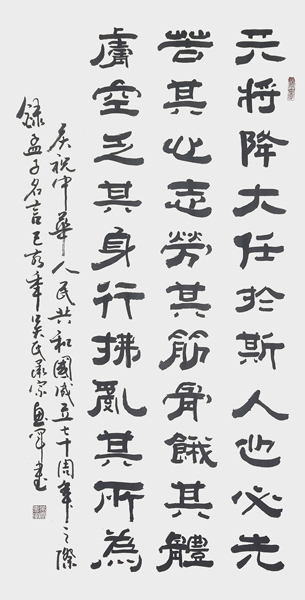 天將降大任於斯人也必先
苦其心志勞其筋骨餓其體
膚空乏其身行拂亂其所為
庆祝中華人民共和國成立七十周年之際
錄孟子名言己亥年吴氏承宗书